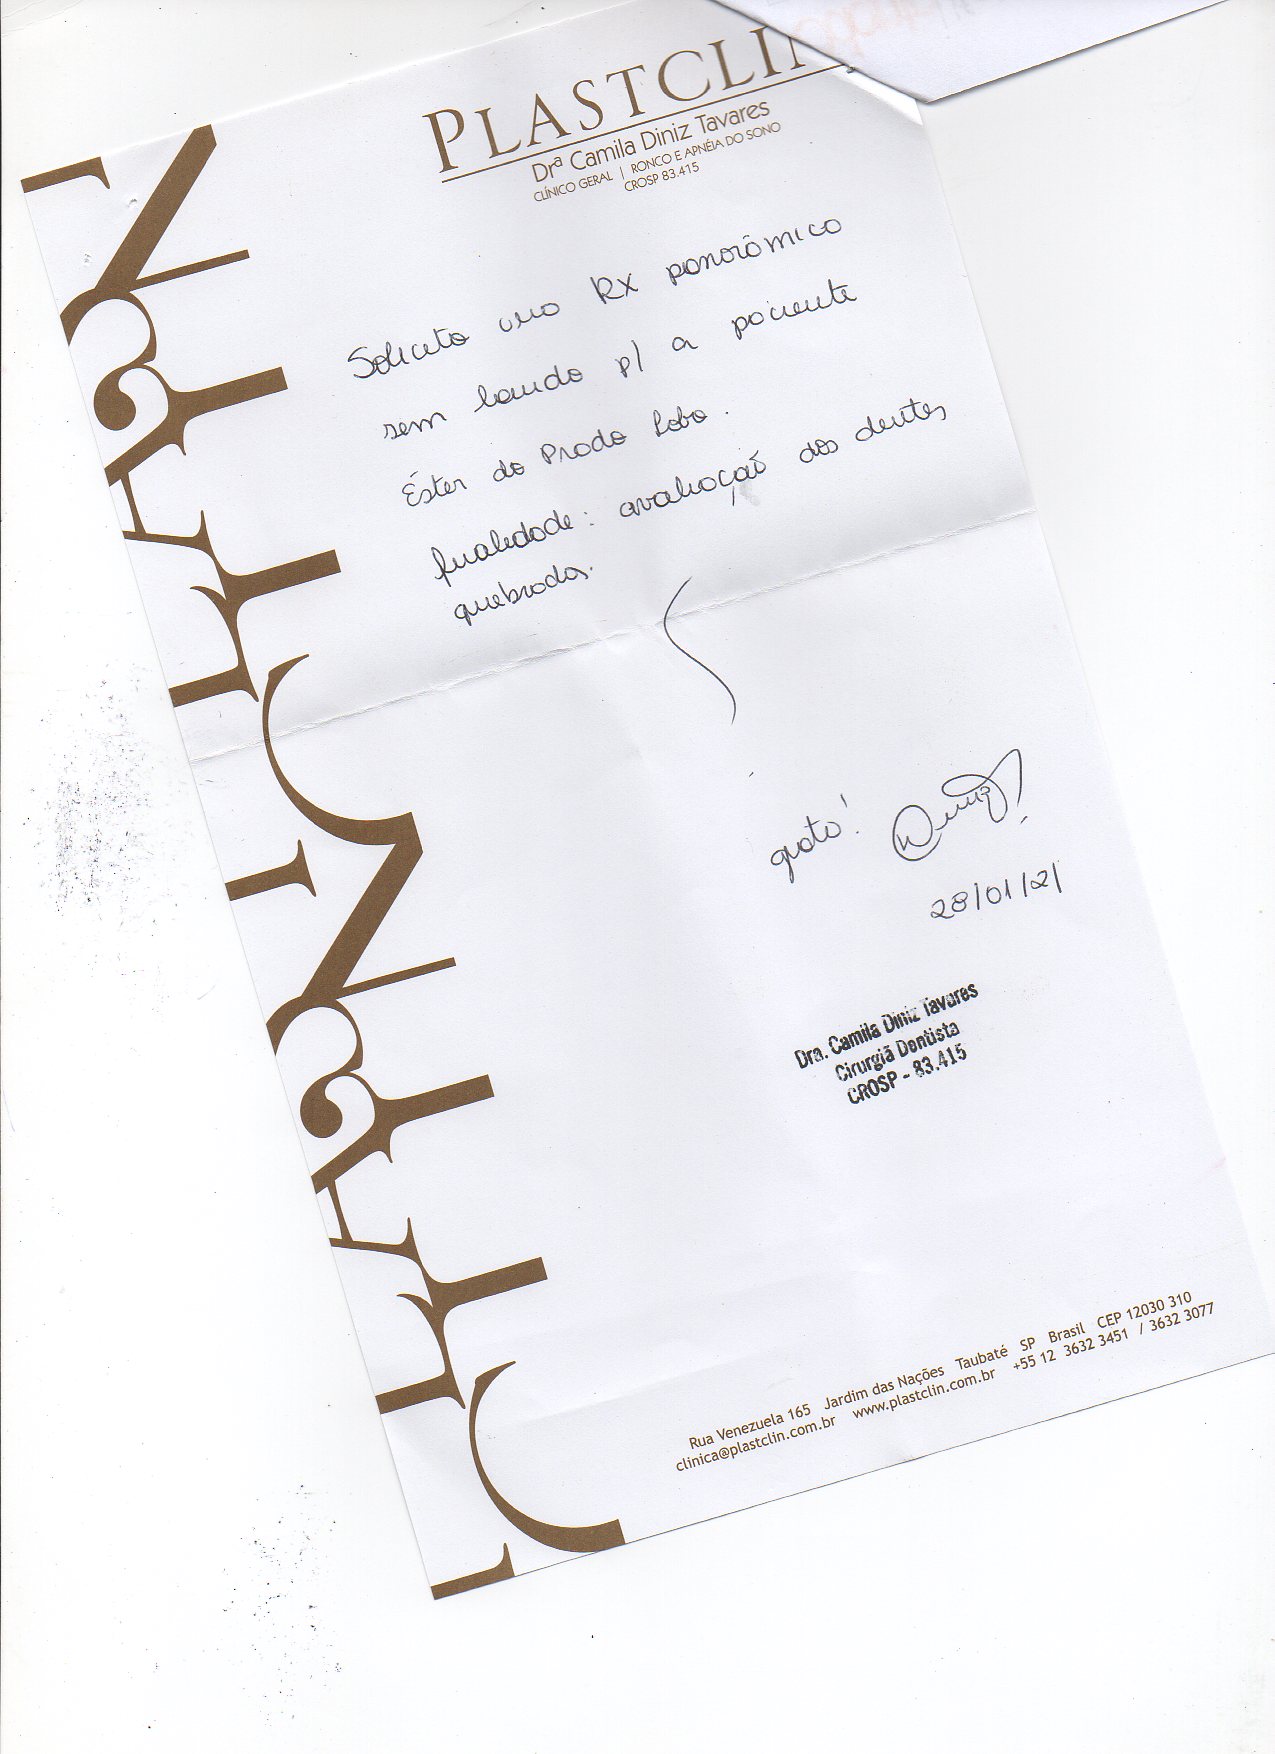 PLASTCLIN
Drª Camila Diniz Tavares
CLÍNICO GERAL | RONCO E APNÉIA DO SONO
CROSP 83.415
Solicito uma RX panorâmico
sem laudo p/ a paciente
Éster do Prado Lobo.
finalidade: avaliação dos dentes
quebrados.
grata!
28/01/21
Dra. Camila Diniz Tavares
Cirurgiã Dentista
CROSP - 83.415
Rua Venezuela 165 Jardim das Nações Taubaté SP Brasil CEP 12030 310
clinica@plastclin.com.br www.plastclin.com.br +55 12 3632 3451 / 3632 3077